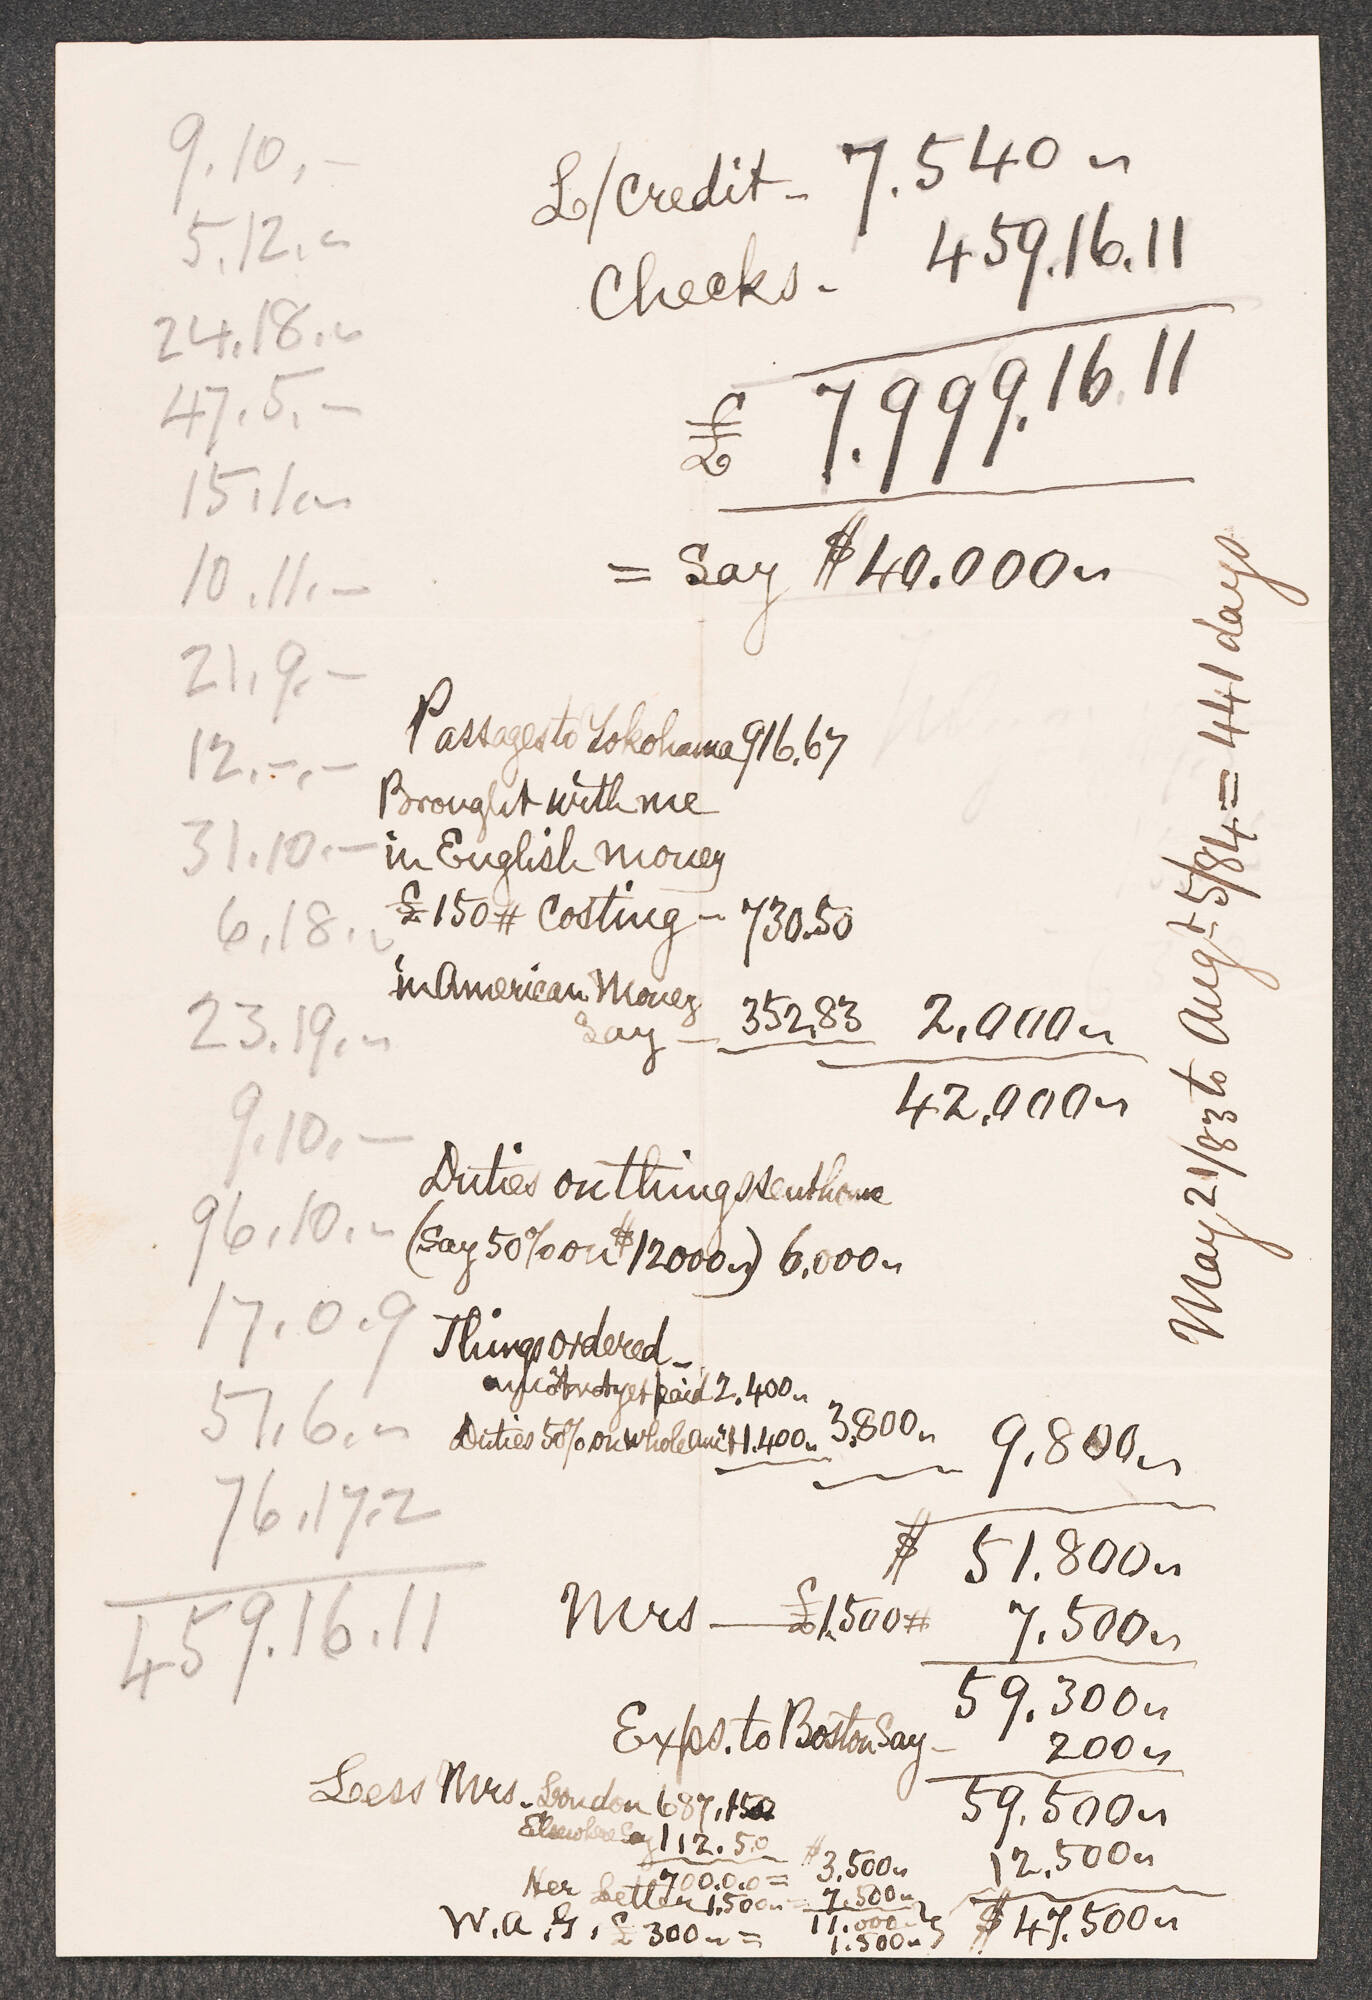 9.10.-
5.12.-
24.18.-
47.5.-
15.1.-
10.11.-
21.9.-
12.-.-
31.10.-
6.18.-
23.19.-
9.10.-
96.10.-
17.0.9
51.6.-
76.17.2
459.16.11
L/Credit - 7.540 "
Checks - 459.16.11
£ 7.999.16.11
= Say $40.000 "
Passages to Yokohama 916.67
Brought with me
in English money
£150# Costing - 730.50
in American Money
Say - 352.83 2.000 "
42.000 "
Duties on things sent home
(Say 50% on $12000 ") 6.000 "
Things ordered -
not yet paid 2.400 "
Duties 50% on whole am't 1.400 " 3.800 " 9.800 "
$ 51.800 "
Mrs — £1.500# 7.500 "
59.300 "
Exps. to Boston Say - 200 "
59.500 "
Less Mrs. London 687.
Elsewhere Say 112.5.0
700.0.0 = $3.500 " 12.500 "
Her Letter 1.500 " = 7.500 "
11.000 " $47.500 "
W.A.G. £300 " = 1.500 "
May 21/83 to Aug't 5/84 = 441 days